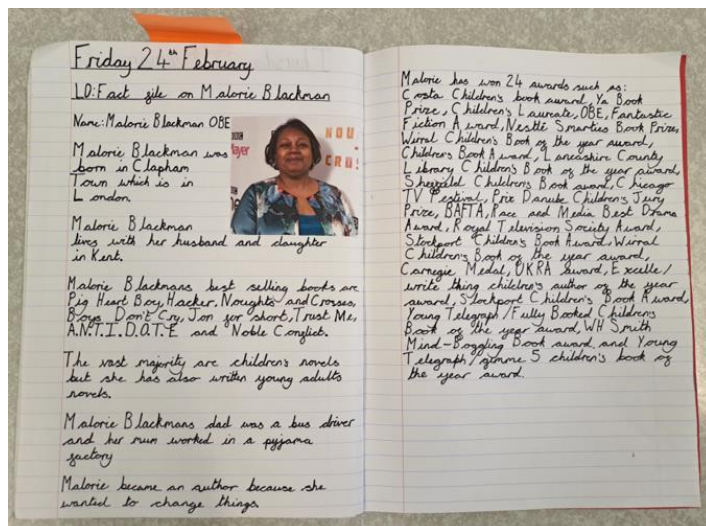 Friday 24th February
LO: Fact file on Malorie Blackman
Name: Malorie Blackman OBE
Malorie Blackman was
born in Clapham
Town which is in
London.
Malorie Blackman
lives with her husband and daughter
in Kent.
Malorie Blackmans best selling books are
Pig Heart Boy, Hacker, Noughts and Crosses,
Boys Don't Cry, Jon for short, Trust Me,
A.N.T.I.D.O.T.E and Noble Conflict.
The vast majority are children's novels
but she has also written young adults
novels.
Malorie Blackmans dad was a bus driver
and her mum worked in a pyjama
factory
Malorie became an author because she
wanted to change things.
NOU
CRO
Malorie has won 24 awards such as:
Costa Children's book award, Ya Book
Prize, Children's Laureate, OBE, Fantastic
Fiction Award, Nestlé Smarties Book Prize,
Wirral Children's Book of the year award,
Children's Book Award, Lancashire County
Library Children's Book of the year award,
Sheffield Children's Book award, Chicago
TV Festival, Prix Danube Children's Jury
Prize, BAFTA, Race and Media Best Drama
Award, Royal Television Society Award,
Stockport Children's Book Award, Wirral
Children's Book of the year award,
Carnegie Medal, UKRA award, Excelle/
write thing children's author of the year
award, Stockport Children's Book Award,
Young Telegraph/Fully Booked Children's
Book of the year award, WH Smith
Mind-Boggling Book award, and Young
Telegraph/gimme 5 children's book of
the year award.